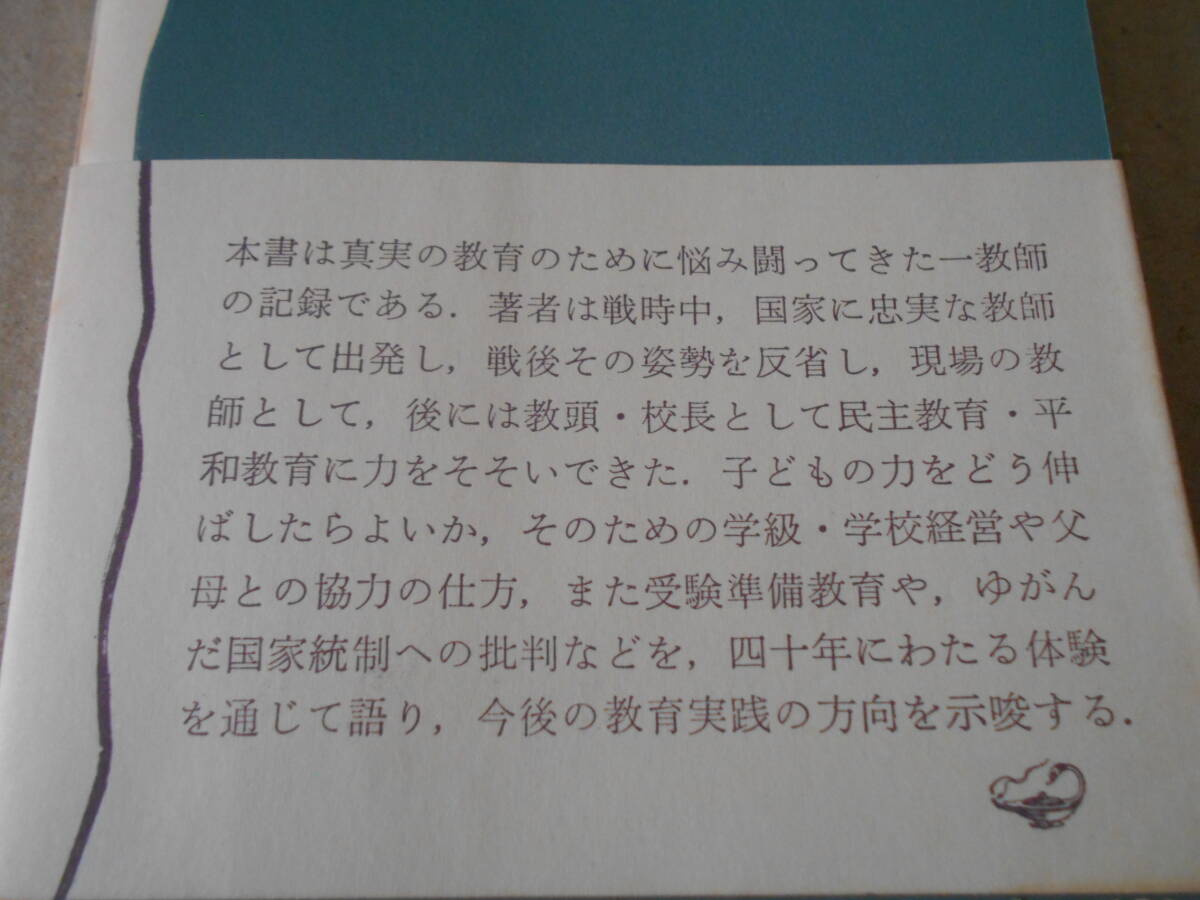 本書は真実の教育のために悩み闘ってきた一教師
の記録である．著者は戦時中，国家に忠実な教師
として出発し，戦後その姿勢を反省し，現場の教
師として，後には教頭・校長として民主教育・平
和教育に力をそそいできた．子どもの力をどう伸
ばしたらよいか，そのための学級・学校経営や父
母との協力の仕方，また受験準備教育や，ゆがん
だ国家統制への批判などを，四十年にわたる体験
を通じて語り，今後の教育実践の方向を示唆する．